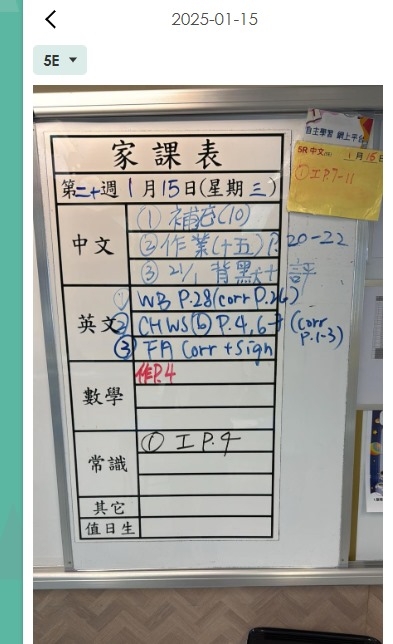 2025-01-15
5E
自主學習 網上平台
5R 中文 1月15日
① 工P.7-11
家課表
第二十週 1月15日(星期三)
中文
① 補充(10)
② 作業(十五) P.20-22
③ 21/1 背默十 評
英文
① WB P.28 (corr P.26)
② CHWS(6) P.4, 6-7 (corr P.1-3)
③ FA Corr + Sign
數學
作P.4
常識
① 工 P.9
其它
值日生